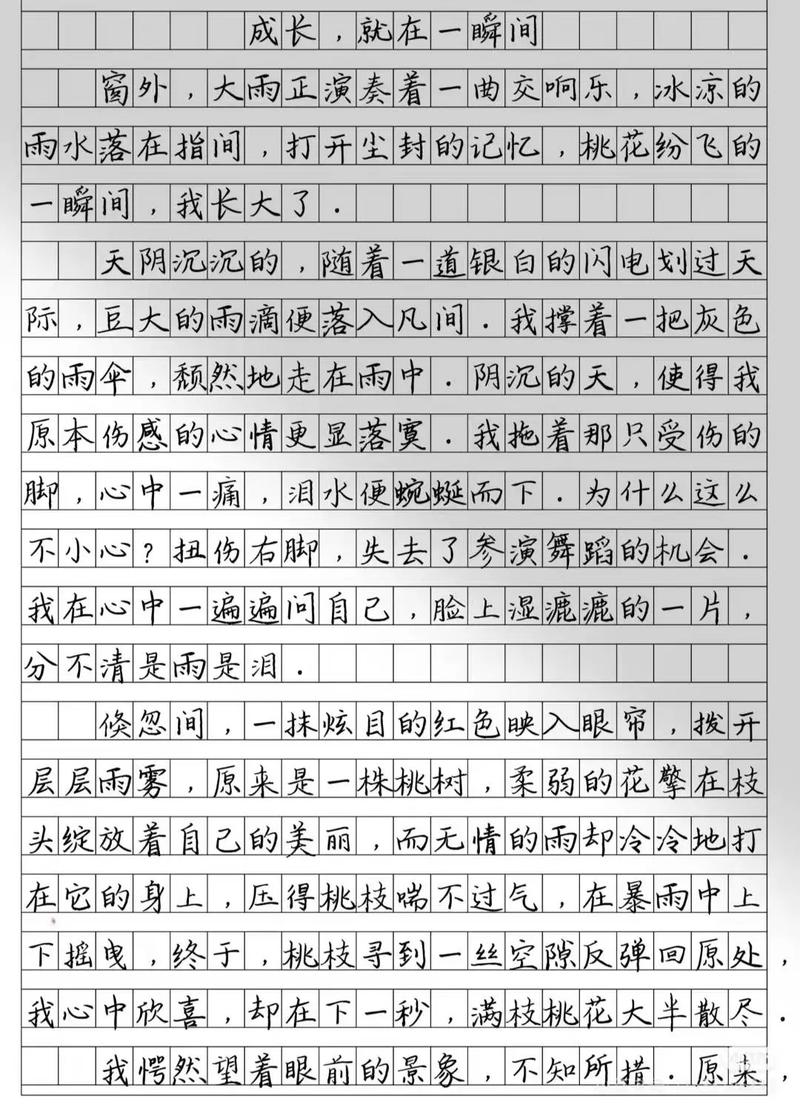 成长，就在一瞬间
窗外，大雨正演奏着一曲交响乐，冰凉的
雨水落在指间，打开尘封的记忆，桃花纷飞的
一瞬间，我长大了．
天阴沉沉的，随着一道银白的闪电划过天
际，豆大的雨滴便落入凡间．我撑着一把灰色
的雨伞，颓然地走在雨中．阴沉的天，使得我
原本伤感的心情更显落寞．我拖着那只受伤的
脚，心中一痛，泪水便蜿蜒而下．为什么这么
不小心？扭伤右脚，失去了参演舞蹈的机会．
我在心中一遍遍问自己，脸上湿漉漉的一片，
分不清是雨是泪．
倏忽间，一抹炫目的红色映入眼帘，拨开
层层雨雾，原来是一株桃树，柔弱的花擎在枝
头绽放着自己的美丽，而无情的雨却冷冷地打
在它的身上，压得桃枝喘不过气，在暴雨中上
下摇曳，终于，桃枝寻到一丝空隙反弹回原处，
我心中欣喜，却在下一秒，满枝桃花大半散尽．
我愕然望着眼前的景象，不知所措．原来，